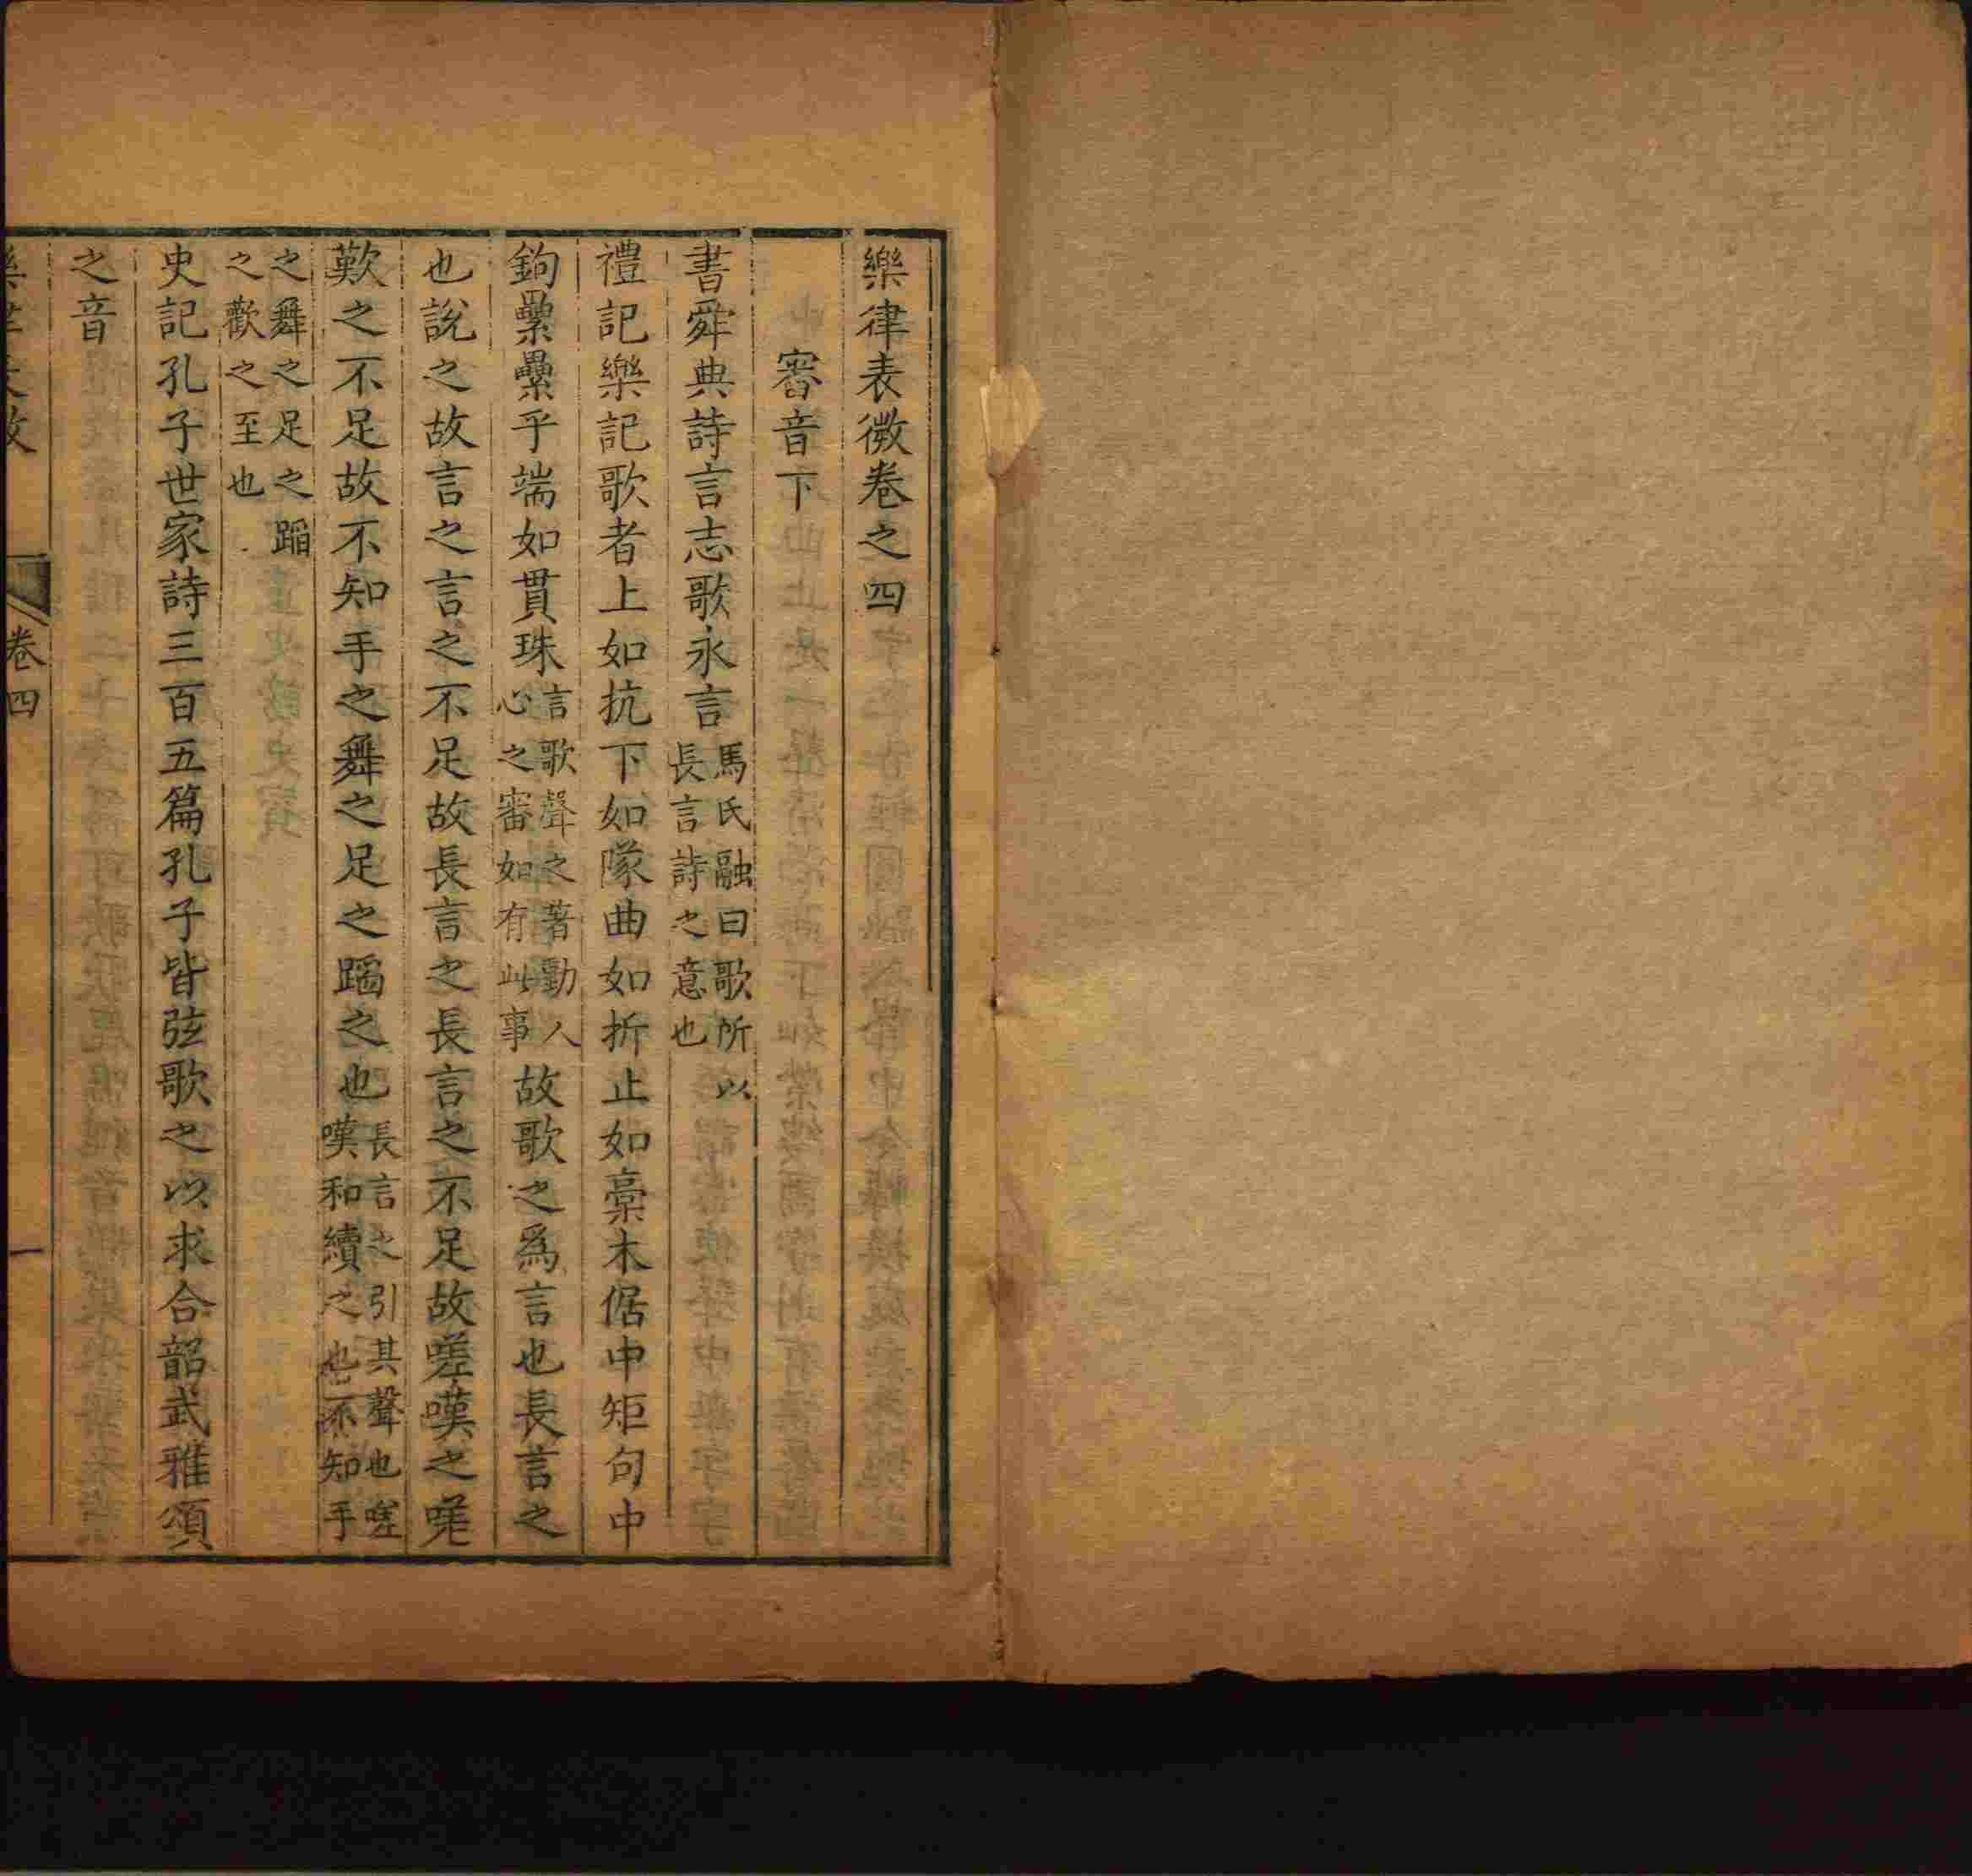 樂律表微卷之四
審音下
書舜典詩言志歌永言馬氏融曰歌所以長言詩之意也
禮記樂記歌者上如抗下如隊曲如折止如槀木倨中矩句中
鉤纍纍乎端如貫珠言歌聲之著動人心之審如有此事故歌之爲言也長言之
也說之故言之言之不足故長言之長言之不足故嗟嘆之嗟
歎之不足故不知手之舞之足之蹈之也長言之引其聲也嗟嘆和續之也不知手
之舞之足之蹈之歡之至也
史記孔子世家詩三百五篇孔子皆弦歌之以求合韶武雅頌
之音
卷四
一